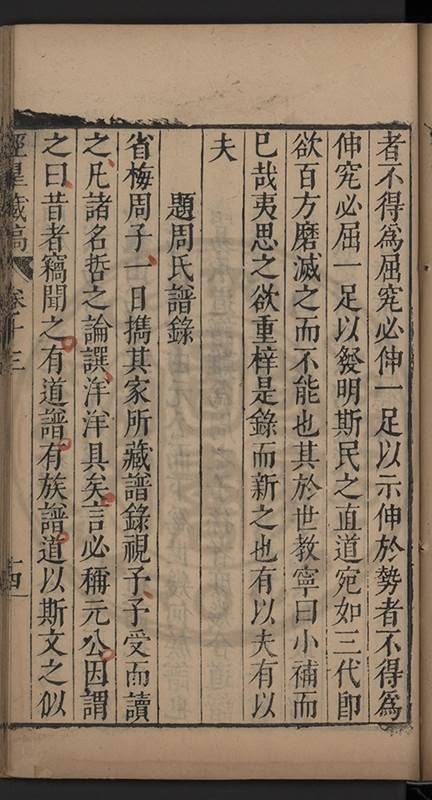 者不得為屈究必伸一足以示伸於勢者不得為
伸究必屈一足以發明斯民之直道宛如三代即
欲百方磨滅之而不能也其於世教寧曰小補而
已哉夷思之欲重梓是錄而新之也有以夫有以
夫
題周氏譜錄
省梅周子一日攜其家所藏譜錄視予予受而讀
之凡諸名哲之論譔洋洋具矣言必稱元公因謂
之曰昔者竊聞之有道譜有族譜道以斯文之似
藏稿 卷十三 十四